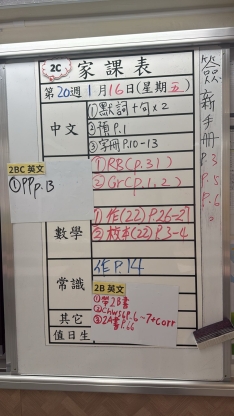 2C 家課表
第20週1月16日(星期五)
中文
①默詞+句x2
②預P.1
③字冊P.10-13
2BC 英文
①PPp.13
①RB(p.31)
②Gr(p.1,2)
數學
①作(22)P.26-27
②校本(22)P.3-4
常識
作P.14
其它
2B 英文
①帶2B書
②Chwsp.6~7+corr
③2A書P.66
值日生
簽新手冊P.3
P.5
P.6